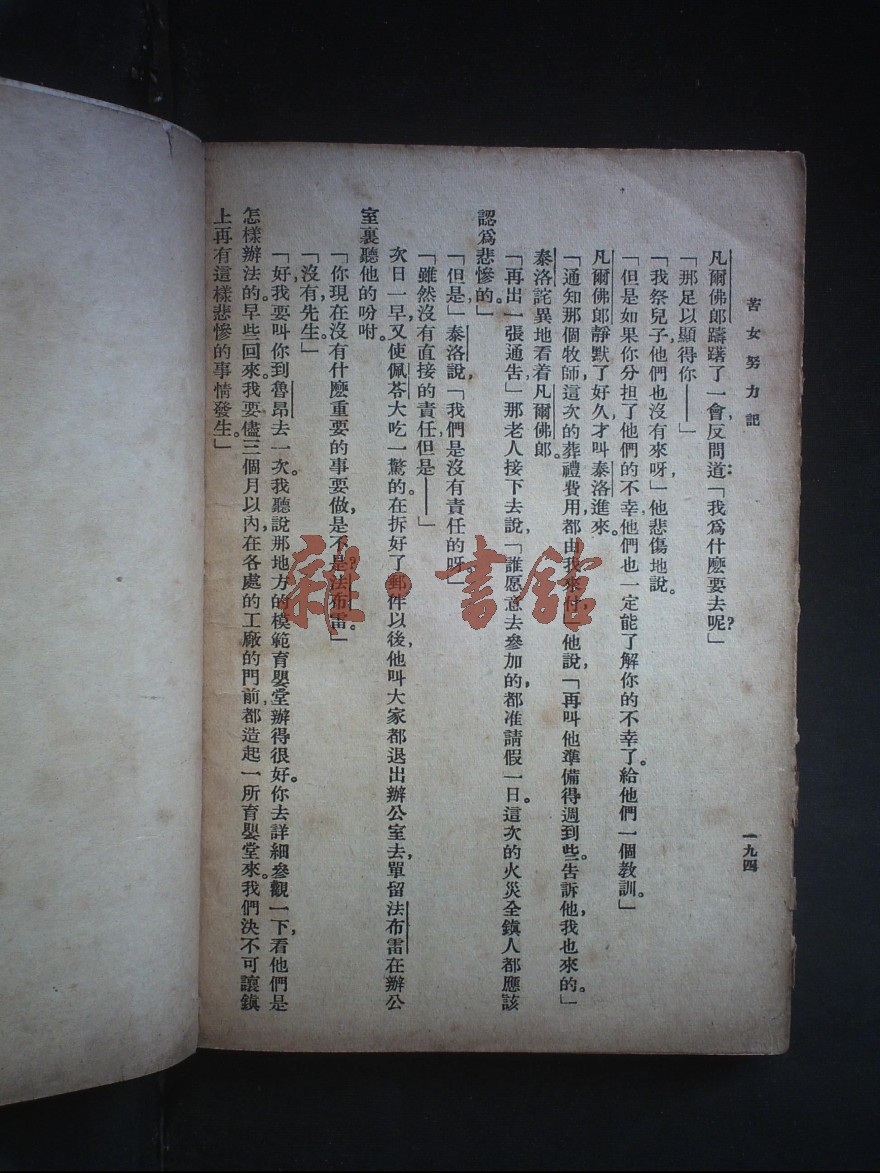 苦女努力記
一九四
凡爾佛郎躊躇了一會，反問道：「我爲什麽要去呢？」
「那足以顯得你——」
「我祭兒子，他們也沒有來呀，」他悲傷地說。
「但是如果你分担了他們的不幸，他們也一定能了解你的不幸了。給他們一個教訓。」
凡爾佛郎靜默了好久，才叫泰洛進來。
「通知那個牧師，這次的葬禮費用，都由我來付，」他說，「再叫他準備得週到些。告訴他，我也來的。」
泰洛詫異地看着凡爾佛郎。
「再出一張通告，」那老人接下去說，「誰愿意去參加的，都准請假一日。這次的火災，全鎮人都應該
認爲悲慘的。」
「但是，」泰洛說，「我們是沒有責任的呀。」
「雖然沒有直接的責任，但是——」
次日一早，又使佩苓大吃一驚的，在拆好了郵件以後，他叫大家都退出辦公室去，單留法布雷在辦公
室裏聽他的吩咐。
「你現在沒有什麽重要的事要做，是不是？法布雷。」
「沒有，先生。」
「好，我要叫你到魯昂去一次。我聽說那地方的模範育嬰堂辦得很好。你去詳細參觀一下，看他們是
怎樣辦法的。早些回來。我要儘三個月以內，在各處的工廠的門前，都造起一所育嬰堂來。我們決不可讓鎮
上再有這樣悲慘的事情發生。」
雜·書館